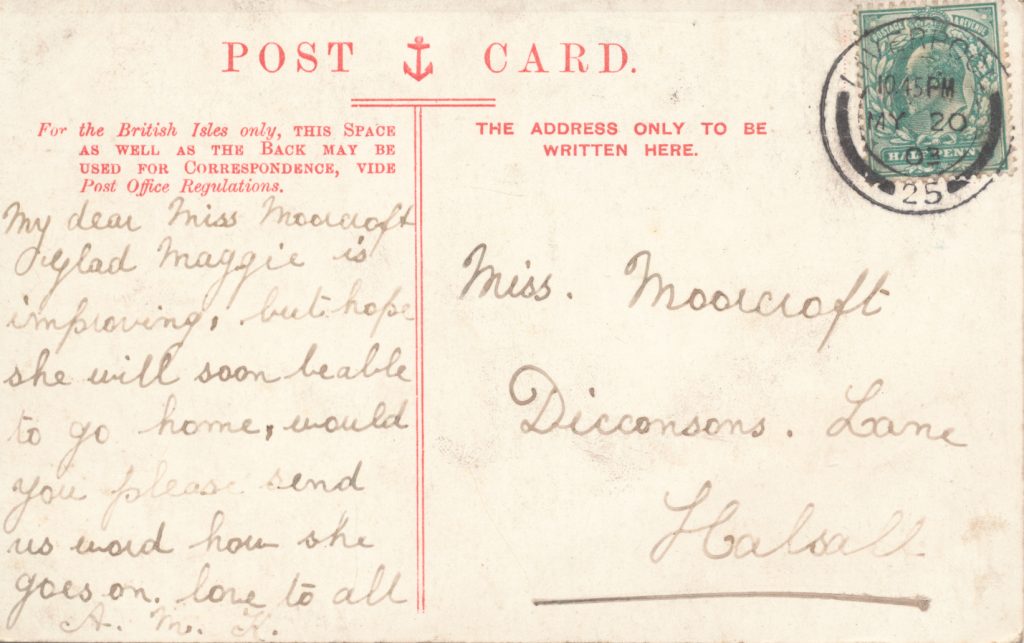 POST CARD.
For the British Isles only, THIS SPACE
AS WELL AS THE BACK MAY BE
USED FOR CORRESPONDENCE, VIDE
Post Office Regulations.
My dear Miss Moorcroft
Glad Maggie is
improving, but hope
she will soon be able
to go home, would
you please send
us word how she
goes on. love to all
A. M. K.
THE ADDRESS ONLY TO BE
WRITTEN HERE.
Miss. Moorcroft
Dicconsons. Lane
Halsall
POSTAGE & REVENUE
HALFPENNY
LIVERPOOL
10.45 PM
MY 20
25